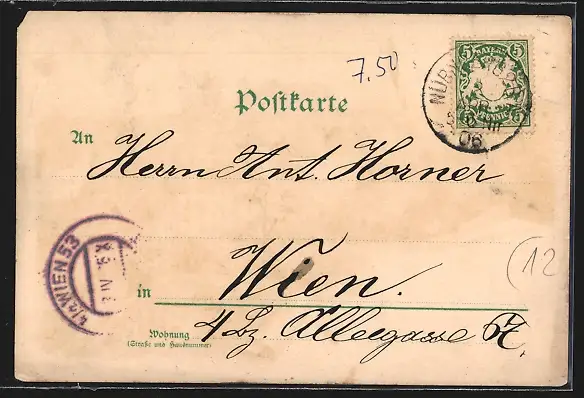 7.50
5 BAYERN 5
PFENNIG
NÜRNBERG
06
Postkarte
An
Herrn Ant. Horner
4/2 WIEN 53
in Wien.
(12
Wohnung
(Straße und Hausnummer)
4 Bz. Alleegasse 67